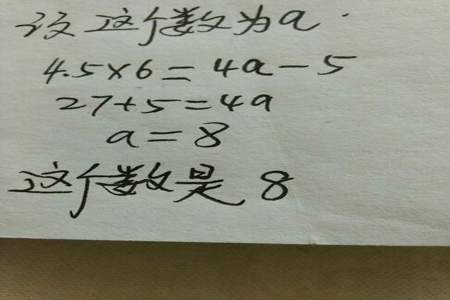 设这个数为a.
4.5×6=4a-5
27+5=4a
a=8
这个数是 8